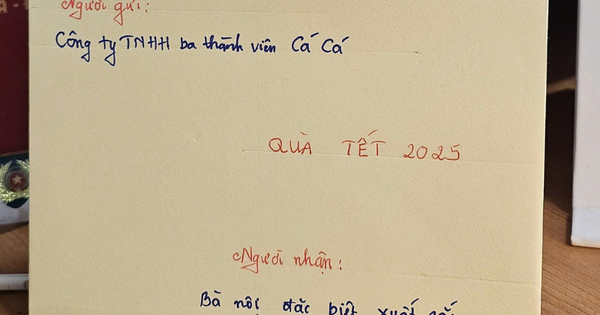 Người gửi:
Công ty TNHH ba thành viên Cá Cá
QUÀ TẾT 2025
Người nhận:
Bà nội đặc biệt xuất sắc